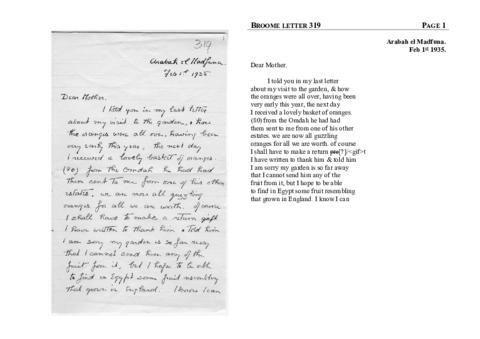 319
Arabah el Madfuna.
Feb 1st 1935
Dear Mother.
I told you in my last letter
about my visit to the garden, & how
the oranges were all over, having been
very early this year, the next day
I received a lovely basket of oranges.
(80) from the Omdah he had had
them sent to me from one of his other
estates. we are now all guzzling
oranges for all we are worth. of course
I shall have to make a return gift
I have written to thank him & told him
I am sorry my garden is so far away
that I cannot send him any of the
fruit from it, but I hope to be able
to find in Egypt some fruit resembling
that grown in England. I know I can
BROOME LETTER 319 PAGE 1
Arabah el Madfuna.
Feb 1st 1935.
Dear Mother,
I told you in my last letter
about my visit to the garden, & how
the oranges were all over, having been
very early this year, the next day
I received a lovely basket of oranges.
(80) from the Omdah he had had
them sent to me from one of his other
estates. we are now all guzzling
oranges for all we are worth. of course
I shall have to make a return [?]/<gif>t
I have written to thank him & told him
I am sorry my garden is so far away
that I cannot send him any of the
fruit from it, but I hope to be able
to find in Egypt some fruit resembling
that grown in England. I know I can